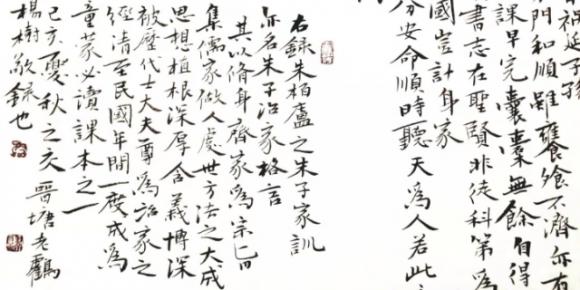 禍延子孫
門和順雖饔飧不濟亦有
課早完囊橐無餘自得
書志在聖賢非徒科第為
國豈計身家
分安命順時聽天為人若此
右錄朱柏廬之朱子家訓
亦名朱子治家格言
其以脩身齊家為宗旨
集儒家做人處世方法之大成
思想植根深厚含義博深
被歷代士大夫尊為治家之
經清至民國年間一度成為
童蒙必讀課本之一
己亥夏秋之交晉塘老
楊樹敬錄也